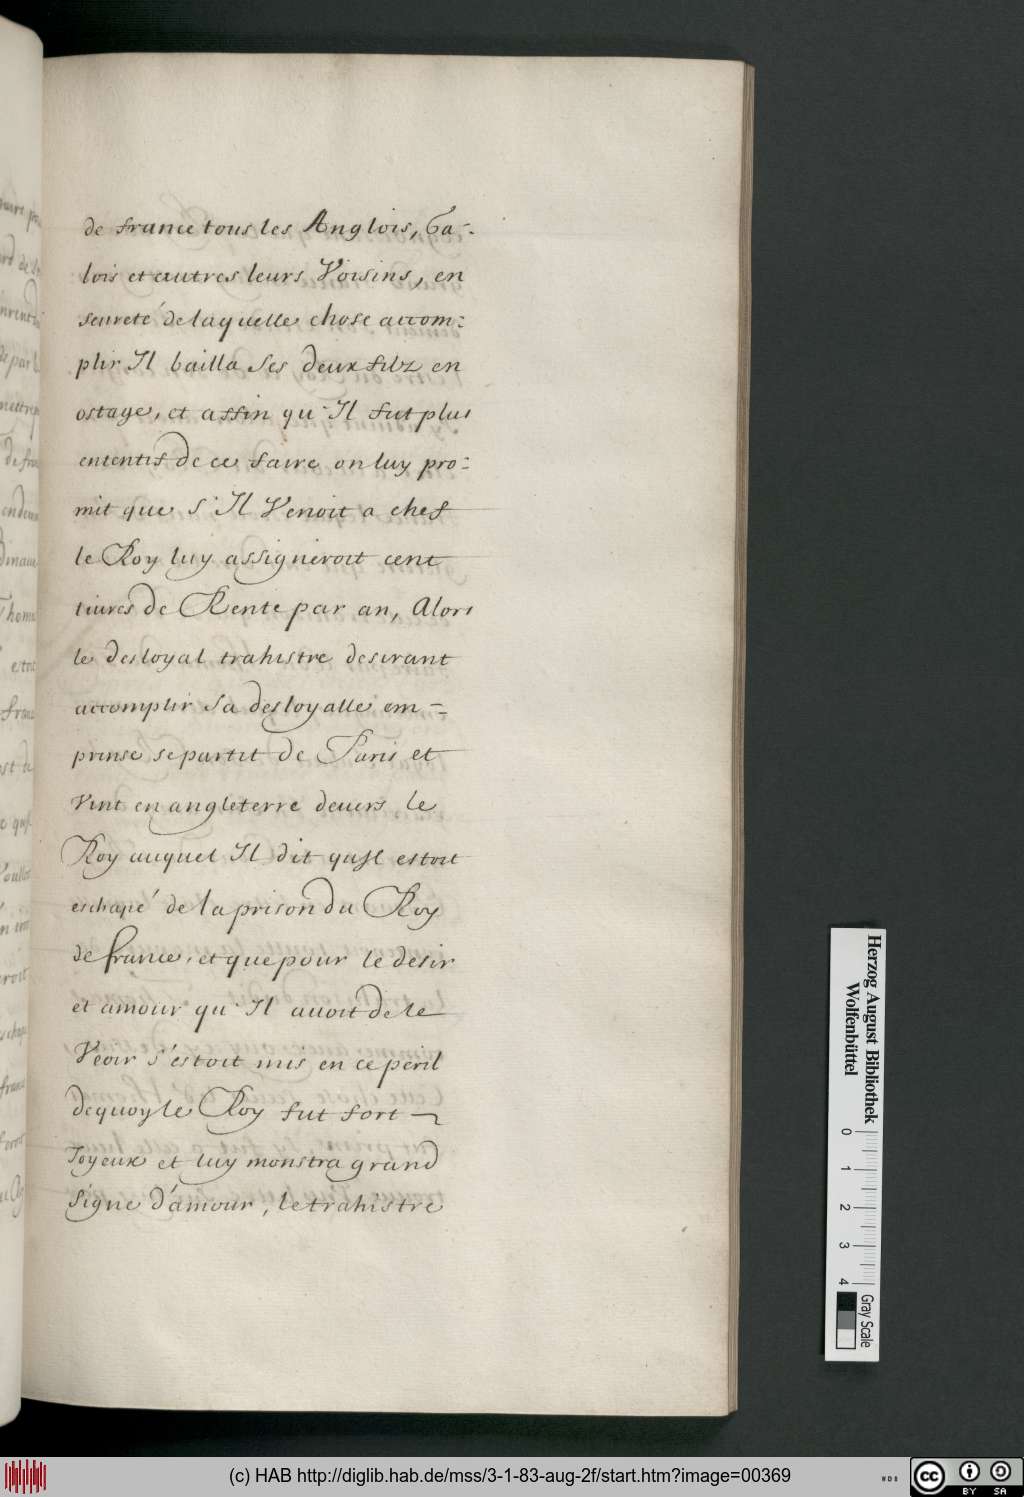 de france tous les Anglois, Ga=
lois et autres leurs Voisins, en
seureté de laquelle chose accom=
plir Il bailla ses deux filz en
ostage, et affin qu'Il fut plus
ententif de ce faire on luy pro=
mit que s'Il Venoit a chef
le Roy luy assigneroit cent
liures de Rente par an, Alors
le desloyal trahistre desirant
accomplir sa desloyalle em=
prinse se partit de Paris et
vint en angleterre deuers le
Roy auquel Il dit qu'Il estoit
eschapé de la prison du Roy
de france, et que pour le desir
et amour qu'Il auoit de le
Veoir s'estoit mis en ce peril
dequoy le Roy fut fort
Joyeux et luy monstra grand
signe d'amour, le trahistre
Herzog August Bibliothek
Wolfenbüttel
0 1 2 3 4
Gray Scale
(c) HAB http://diglib.hab.de/mss/3-1-83-aug-2f/start.htm?image=00369
cc BY SA